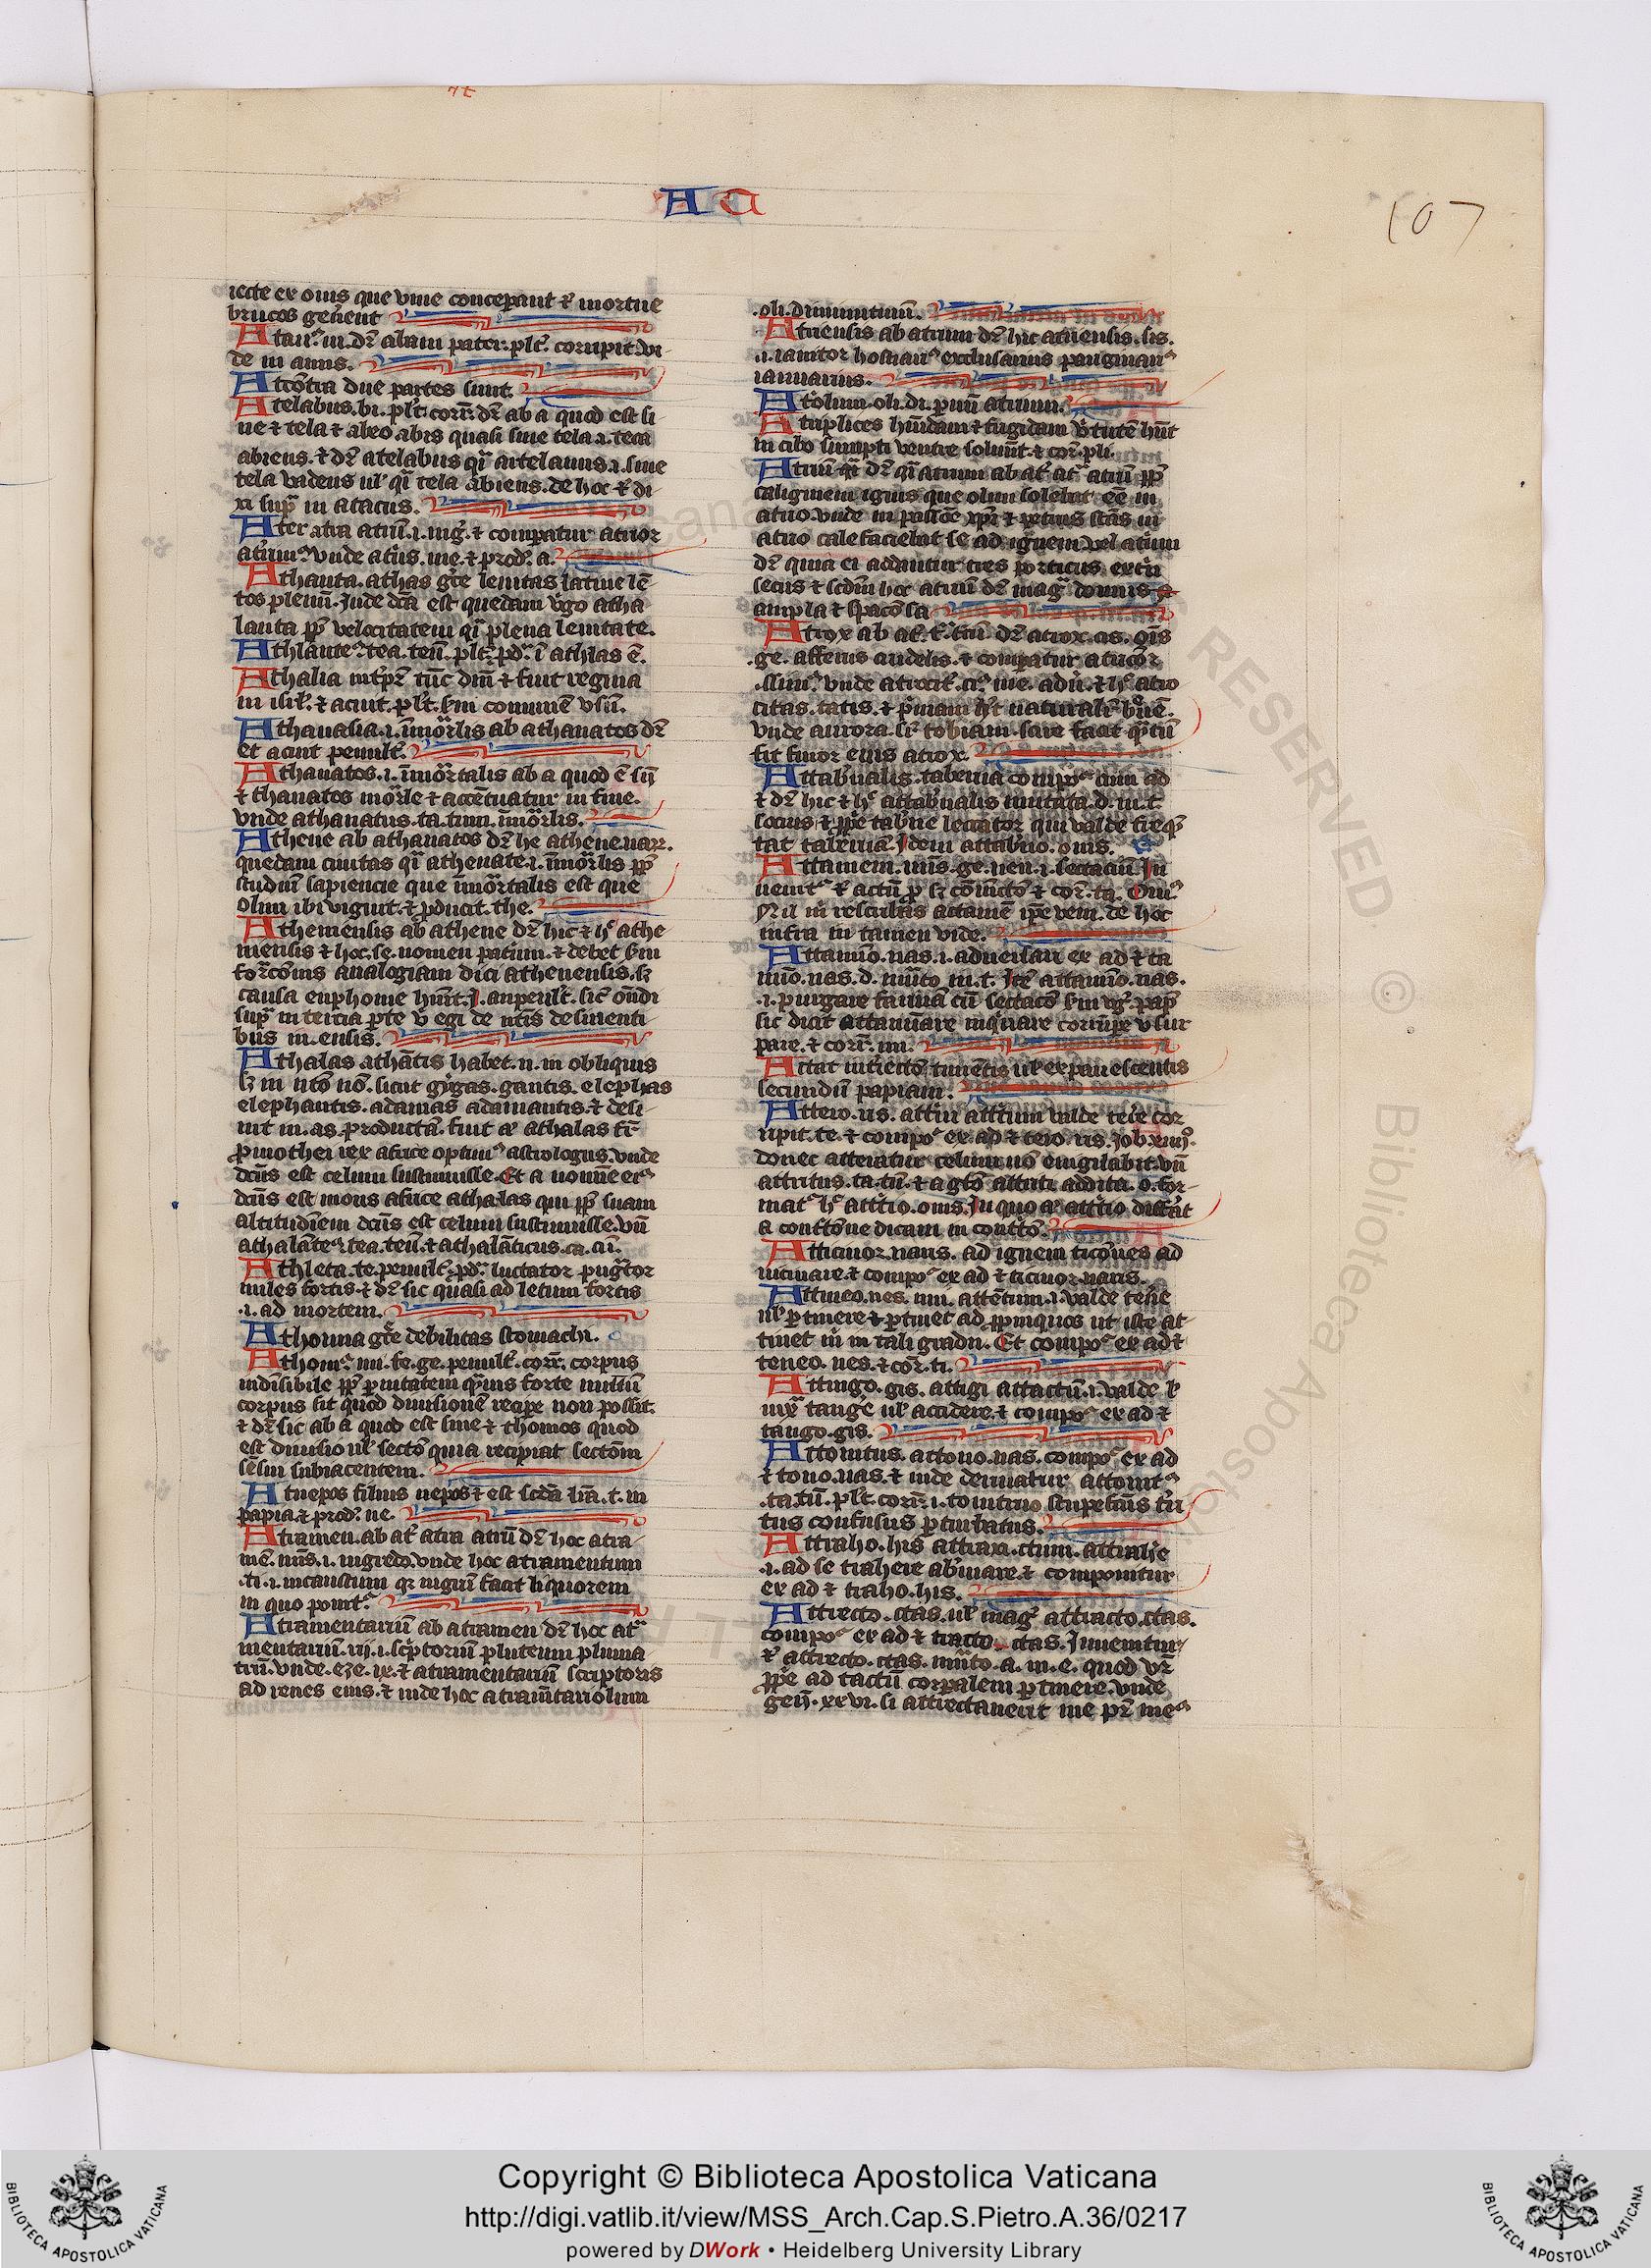 A T
107
iecte ex ouis que viue conceperant ⁊ mortue
brucos genent
Atau᷒. ui. dr̄ abaui pater. plt̄. corripit. vi
de in auus.
Atrōtra due partes sunt.
Atelabus. bi. plt̄. corr̄. dr̄ ab a quod est si
ne ⁊ tela ⁊ abeo abis quasi sine tela .i. tecta
abiens. ⁊ dr̄ atelabus qi̅ artelauus .i. sine
tela vadens ul̓ qi̅ tela abiens. de hoc ⁊ di
xi sup̄ in atacus.
Ater atra atrū .i. nig̓. ⁊ comparatur atrior
aterrim᷒ vnde atrius. me. ⁊ prod᷒. a.
Athanta. athas gr̄e lenitas latine lē
tos plenū. Inde dc̄a est quedam v̓go atha
lanta pp̄ velocitatem qi̅ plena lenitate.
Athlante᷒. tea. teū. plt̄. pd᷒. ī athlas ē.
Athalia int̓pr̄ tūc dn̄i ⁊ fuit regina
in isrl̓. ⁊ acuit. plt̄. s̄m comunē vsū.
Athanasia .i. īmor̄lis ab athanatos dr̄
et acuit penult̄.
Athanatos .i. īmor̄talis ab a quod ē sn̄
⁊ thanatos mor̄le ⁊ accētuatur in fine.
vnde athanatus. ta. tum. īmor̄lis.
Athene ab athanatos dr̄ he athene. nar̄.
quedam ciuitas qi̅ athenate .i. īmor̄lis pp̄
studiū sapiencie que īmor̄talis est que
olim ibi viguit. ⁊ p̄ducit. the.
Atheniensis ab athene dr̄ hic ⁊ h᷒ athe
niensis ⁊ hoc. se. nomen patrium. ⁊ debet s̄m
for̄cōnis analogiam dici athenensis. sꝫ
causa euphonie hn̄t. I. anpenlt̄. sic̄ on̄di
sup̄ in tercia p̄te v̓ egi de nt̄is desinenti
bus in. ensis.
Athalas athātis habet. n. in obliquis
sꝫ in nt̄o nō. sicut gygas. gantis. elephas
elephantis. adamas adamantis. ⁊ desi
nit in. as. productā. fuit aꝫ athalas fr̄
promothei rex africe optim᷒ astrologus. vnde
dc̄us est celum sustinuisse. Et a noīne ei᷒
dc̄us est mons africe athalas qui pp̄ suam
altitudinem dc̄us est celum sustinuisse. vn̄
athalāte᷒. tea. teū. ⁊ athalāticus. ca. cū.
Athleta. te. penult̄. pd᷒. luctator pugn̄tor
miles fortis. ⁊ dr̄ sic quasi ad letum fortis
.i. ad mortem.
Athonna gr̄e debilitas stomachi.
Athom᷒ mi. fe. ge. penult̄. corr̄. corpus
indiuisibile pp̄ p̄uitatem qu̓is forte nullū
corpus sit quod diuisionē recipe non possit.
⁊ dr̄ sic ab a quod est sine ⁊ thomos quod
est diuisio ul̓ sectō quia recipiat sectōm
sēsui subiacentem.
Atnepos filius nepos ⁊ est scd̄a lr̄a. t. in
papia ⁊ prod᷒. ne.
Atramen. ab at̓ atra atrū dr̄ hoc atra
mē. nis̄ .i. nigredo. vnde hoc atramentum
.ti. i. incaustum qꝫ nigrū facit liquorem
in quo ponit᷒.
Atramentariū ab atramen dr̄ hoc atr̄
mentariū. rij. i. sc̄ptoriū pluteum pluma
triū. vnde. eze. ix. ⁊ atramentariū scriptoris
ad renes eius. ⁊ inde hoc atram̄tariolum
.oli. diminutiuū.
Atriensis ab atrium dr̄ hic atriensis. sis.
.i. ianitor hostiari᷒ exclusarius paruginari᷒
ianuarius.
Atriolum. oli. di. paruū atrium.
Atriplices hūidam ⁊ frigidam v̓tutē hn̄t
in cibo sumpti ventrē soluūt. ⁊ cor̄. pli.
Atriū qi̅ dr̄ qi̅ atrum ab at̓ atr̄ atrū pp̄
caliginem ignis que olim solebat ēe in
atrio. vnde in passiōe xp̄i ⁊ petrus stās in
atrio calefaciebat se ad ignem vel atrium
dr̄ quia ei adduntur tres porticus extrin
secus ⁊ scd̄m hoc atriū dr̄ mag̓ domus
ampla ⁊ spaciōsa
Atrox ab at̓. t̓. trū dr̄ atrox. cis. oīs
.ge. asperus crudelis. ⁊ comparatur atrocior
.ssim᷒. vnde atrocit̓. ci᷒. me. adu̓. ⁊ h᷒ atro
citas. tatis. ⁊ p̓mam h̓t naturalit̓ bruē.
vnde aurora. li̓ tobiam. scire facit q̄tū
fit furor eius atrox.
Attabnalis. taberna compo᷒ cum ad
⁊ dr̄ hic ⁊ h᷒ attab̓nalis mutata. d. in. t.
socius ⁊ p̄pe tab̓ne leccator qui valde freq᷒
tat tab̓nā. Idem attab̓rio. onis.
Attamen. inis̄. ge. neu. i. sectaciū. In
uenit᷒ ⁊ actū p̱ sꝫ cōiūctō ⁊ cor̄. ta. Oui᷒.
Nil m̓ rescribas attamē ip̄e veni. de hoc
infra in tamen vide.
Attamino. nas. i. adu̓sari ex ad ⁊ ta
mīo. nas. d. mūto in. t. Itē attamīo. nas.
.i. purgare farinā cū sectacō s̄m vg᷒. papi̅
sic dicit attaminare inqnare corrūpe vsur
pare. ⁊ corr̄. mi.
Attat int̓iectō timētis ul̓ expauescentis
secundū papiam.
Attero. ris. attriui attritum valde tere cor
ripit. te. ⁊ compo᷒ ex ad ⁊ tero. ris. Job. xiiij.
donec atteratur celum nō euigilabit. vn̄
attritus. ta. tū. ⁊ a gtō attriti addita. o. for
mat᷒ h᷒ att̓tio. onis. In quo aꝫ attritio distāt
a contritōne dicam in cont̓tō.
Atticinor. naris. ad ignem ticōnes ad
iuuare. ⁊ compo᷒ ex ad ⁊ ticinor. naris.
Attineo. nes. nui. attētum .i. valde tene
ul̓ p̱tinere ⁊ p̱tinet ad p̄pinquos ut iste at
tinet m̓ in tali gradu. Et compo᷒ ex ad ⁊
teneo. nes. ⁊ cor̄. ti.
Attingo. gis. attigi attactū .i. valde l̓
iux̄ tange̓ ul̓ accidere. ⁊ compo᷒ ex ad ⁊
tango. gis.
Attonitus. attono. nas. compo᷒ ex ad
⁊ tono. nas. ⁊ inde deriuatur attonit᷒
.ta. tū. plt̄. corr̄ .i. tonitruo stupefactus t̓ri
tus confusus p̱turbatus.
Attraho. his attraxi. ctum. attrahe̓
.i. ad se trahere abiuare. ⁊ componitur
ex ad ⁊ traho. his.
Attrecto. ctas. ul̓ mag᷒ attracto. ctas.
compo᷒ ex ad ⁊ tracto. ctas. Inuenitur
⁊ attrecto. ctas. mūto. a. in. e. quod vr̄
p̄pe ad tactū corp̱alem p̱tinere. vnde
gen̄. xxvi. si attrectauerit me pr̄ me᷒
RESERVED © Biblioteca Aposto
Copyright © Biblioteca Apostolica Vaticana
http://digi.vatlib.it/view/MSS_Arch.Cap.S.Pietro.A.36/0217
powered by DWork • Heidelberg University Library
BIBLIOTECA APOSTOLICA VATICANA
BIBLIOTECA APOSTOLICA VATICANA